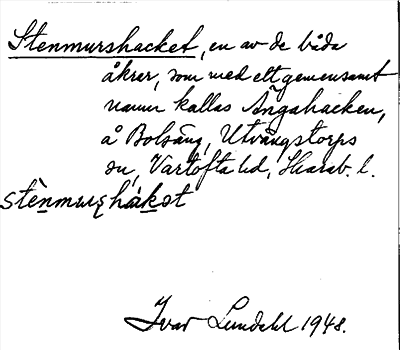 Stenmurshacket, en av de båda
åkrer, som med ett gemensamt
namn kallas Ängahacken,
å Bolsäng, Utvängstorps
sn, Vartofta hd, Skarab. l.
stènmurʂhák̲ət
Ivar Lundahl 1948.